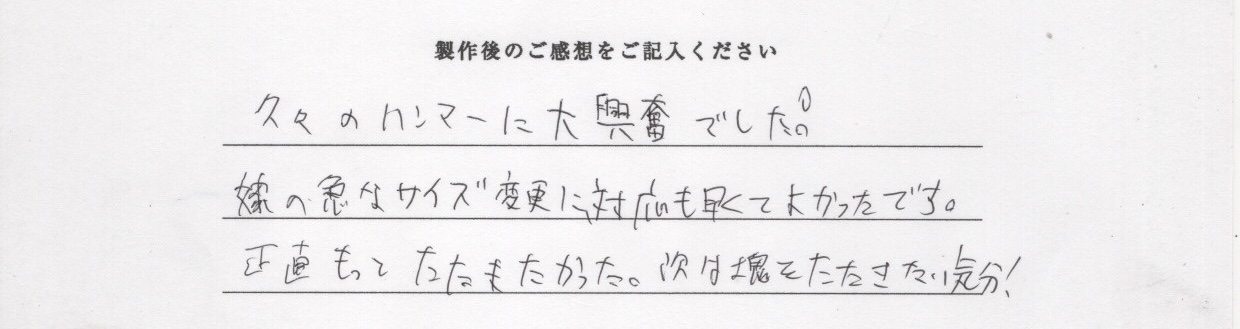 製作後のご感想をご記入ください
久々のハンマーに大興奮でした!
嫁の急なサイズ変更に対応も早くてよかったです。
正直もっとたたきたかった。次は塊をたたきたい気分!